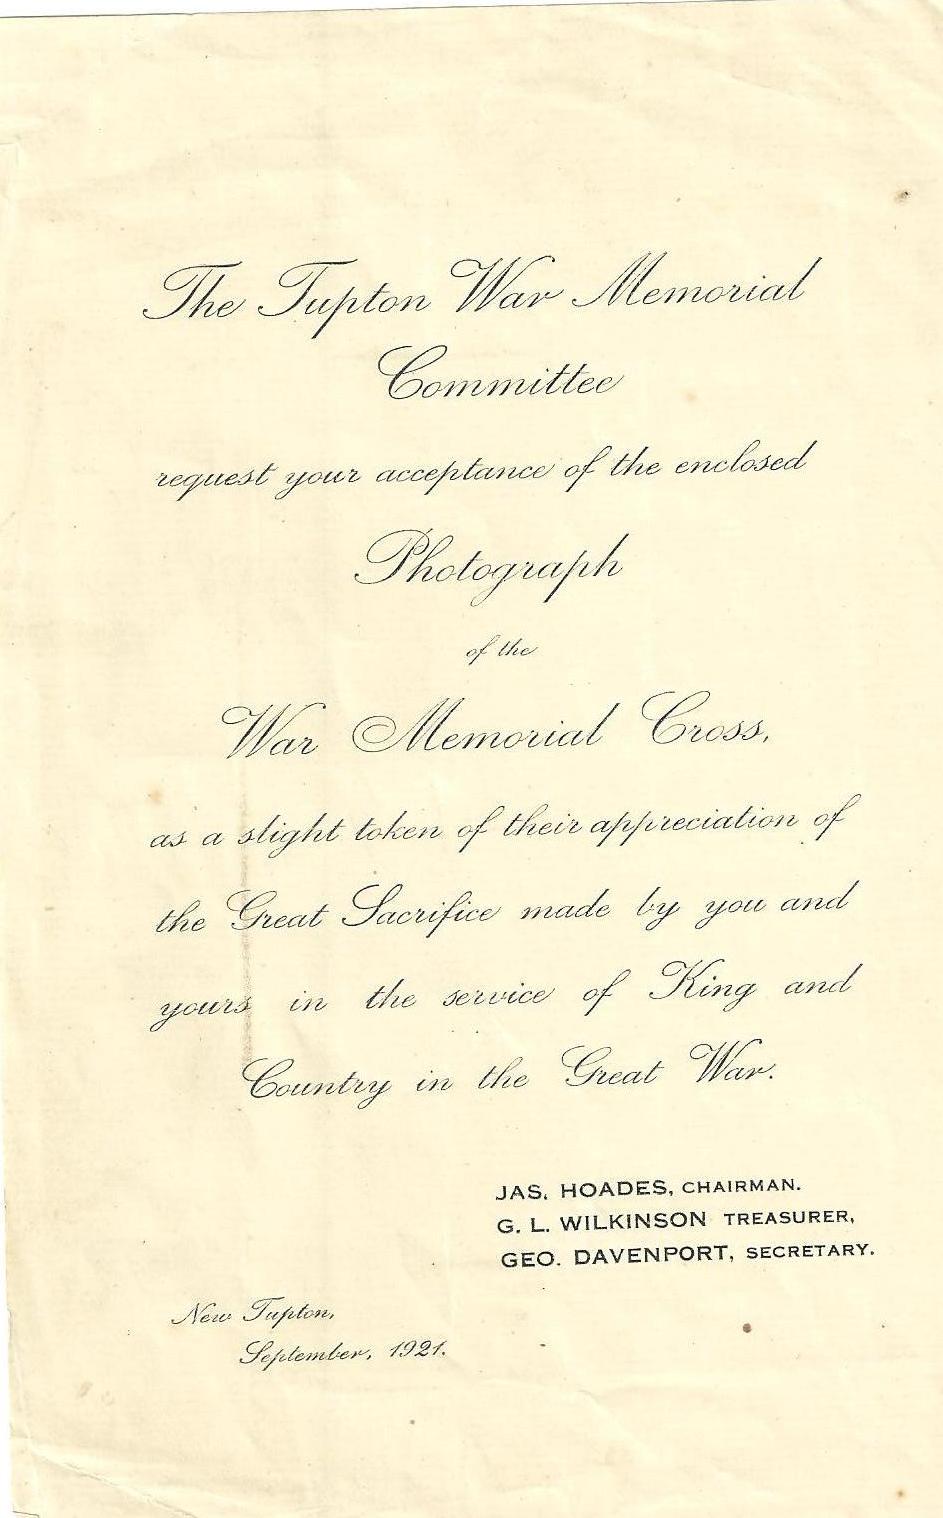 The Tupton War Memorial
Committee
request your acceptance of the enclosed
Photograph
of the
War Memorial Cross,
as a slight token of their appreciation of
the Great Sacrifice made by you and
yours in the service of King and
Country in the Great War.
JAS. HOADES, CHAIRMAN.
G. L. WILKINSON TREASURER,
GEO. DAVENPORT, SECRETARY.
New Tupton,
September, 1921.